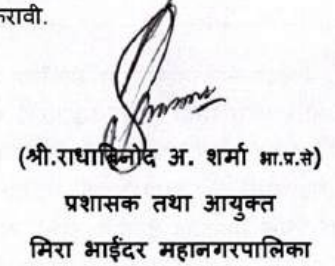 करावी.
(श्री.राधाबिनोद अ. शर्मा भा.प्र.से)
प्रशासक तथा आयुक्त
मिरा भाईंदर महानगरपालिका